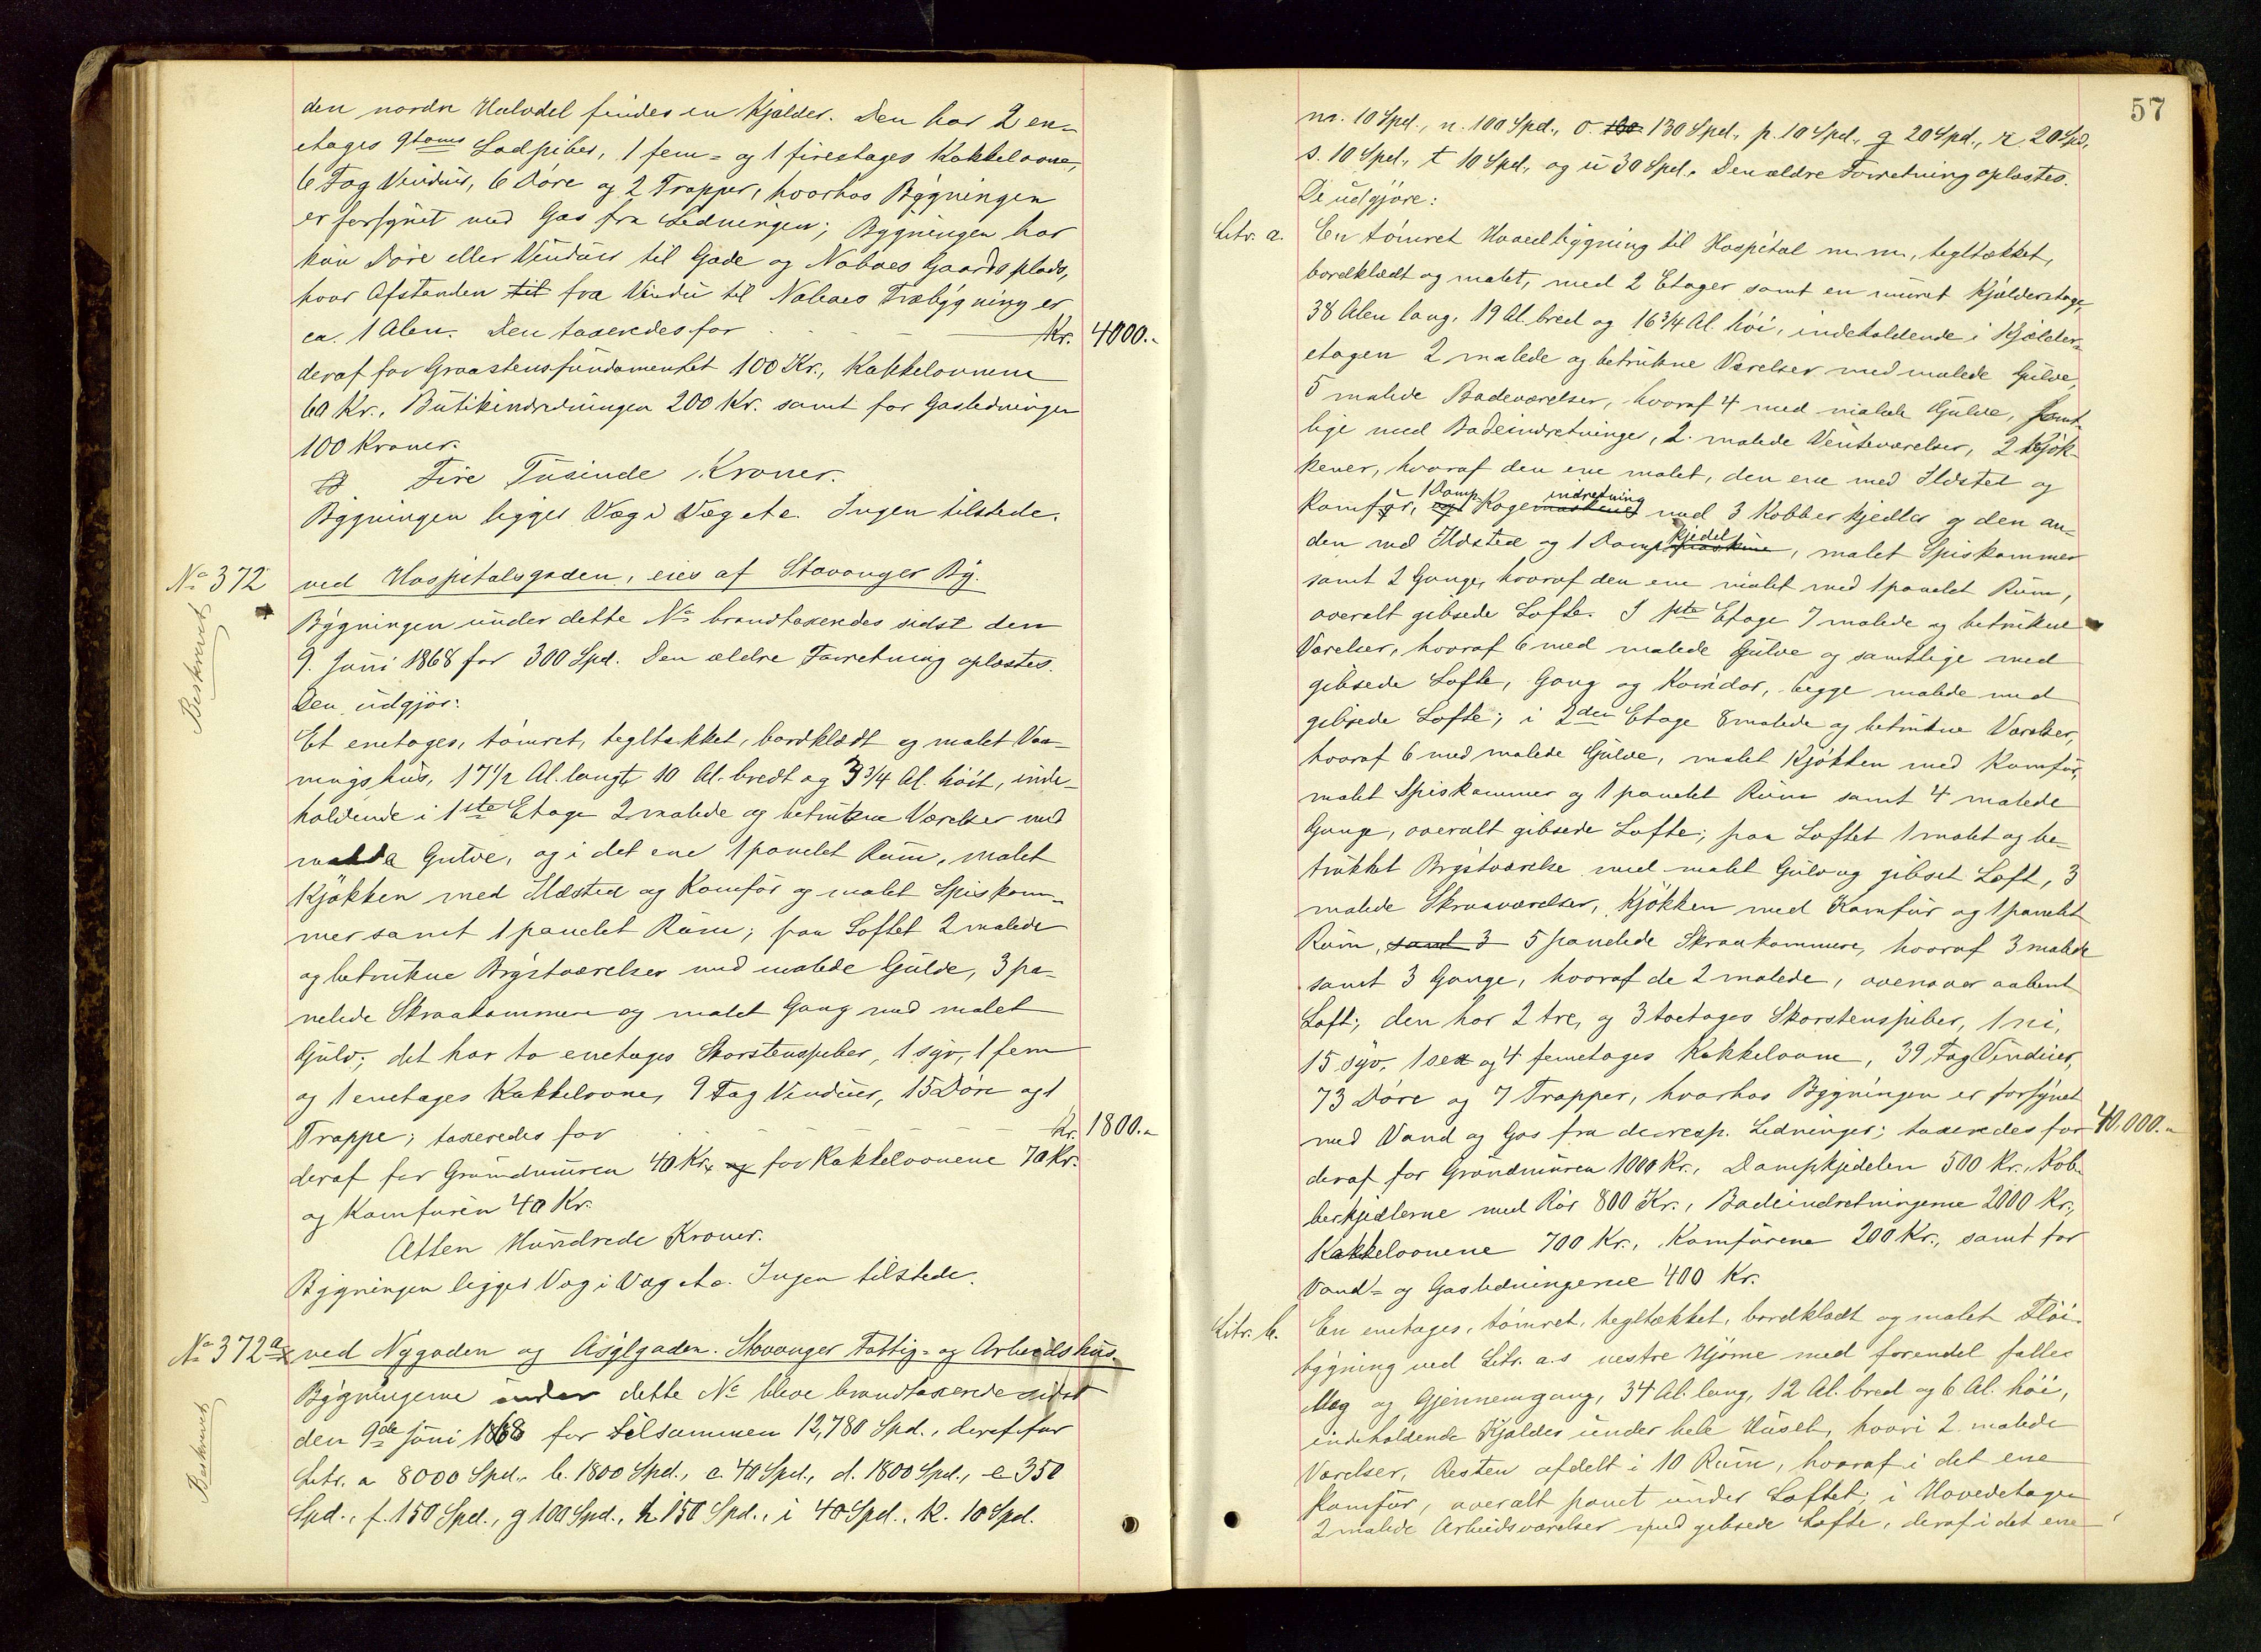 den nordre Halvdel findes en Kjælder. Den har 2 en-
etages 9toms Lodpiber, 1 fem- og 1 fireetages Kakkelovne,
6 Fag Vinduer, 6 Døre og 2 Trapper, hvorhos Bygningen
er forsynet med Gas fra Ledningen; Bygningen har
kun Døre eller Vinduer til Gade og Naboes Gaardsplads,
hvor Afstanden til fra Vindu til Naboes Træbygning er
ca. 1 Alen. Den taxeredes for Kr. 4000.-
deraf for Graastensfundamentet 100 Kr., Kakkelovnene
60 Kr., Butikindredningen 200 Kr. samt for Gasledningen
100 Kroner.
Fire Tusinde Kroner.
Bygningen ligger Væg i Væg etc. Ingen tilstede.
No 372 ved Hospitalsgaden, eies af Stavanger By.
Beskrevet
Bygningen under dette No brandtaxeredes sidst den
9. Juni 1868 for 300 Spd. Den ældre Forretning oplæstes.
Den udgjør:
Et enetages, tømret, tegltækket, bordklædt og malet Vaa-
ningshus, 17 1/2 Al. langt, 10 Al. bredt og 3 3/4 Al. høit, inde-
holdende i 1ste Etage 2 malede og betrukne Værelser med
malede Gulve, og i det ene 1 panelet Rum, malet
Kjøkken med Ildsted og Komfør og malet Spiskam-
mer samt 1 panelet Rum; paa Loftet 2 malede
og betrukne Brystværelser med malede Gulve, 3 pa-
nelede Skraakammere og malet Gang med malet
Gulv; det har to enetages Skorstenspiber, 1 syv, 1 fem
og 1 enetages Kakkelovne, 9 Fag Vinduer, 15 Døre og 1
Trappe; taxeredes for Kr. 1800.-
deraf for Grundmuren 40 Kr., og for Kakkelovnene 70 Kr.
og Komfuren 40 Kr.
Atten Hundrede Kroner.
Bygningen ligger Væg i Væg etc. Ingen tilstede.
No 372a ved Nygaden og Asylgaden. Stavanger Fattig- og Arbeidshus.
Beskrevet
Bygningerne under dette No bleve brandtaxerede sidst
den 9de Juni 1868 for tilsammen 12,780 Spd., deraf for
Litr. a 8000 Spd., b. 1800 Spd., c. 40 Spd., d. 1800 Spd., e 350
Spd., f. 150 Spd., g 100 Spd., h 150 Spd., i 40 Spd., k. 10 Spd.
57
m. 10 Spd., n. 100 Spd., o. 130 Spd., p. 10 Spd., q 20 Spd., r. 20 Spd,
s. 10 Spd., t 10 Spd., og u 30 Spd. Den ældre Forretning oplæstes.
De udgjøre:
Litr. a. En tømret Hovedbygning til Hospital m.m., tegltækket,
bordklædt og malet, med 2 Etager samt en muret Kjælderetage,
38 Alen lang, 19 Al. bred og 16 3/4 Al. høi, indeholdende i Kjælder-
etagen 2 malede og betrukne Værelser med malede Gulve,
5 malede Badeværelser, hvoraf 4 med malede Gulve, samt-
lige med Badeindretninger, 2 malede Venteværelser, 2 Kjøk-
kener, hvoraf den ene malet, den ene med Ildsted og
Komfør, og 1 Damp Kogemaskine indretning med 3 Kobberkjedler og den an-
den med Ildsted og 1 Dampmaskine kjedel, malet Spiskammer
samt 2 Gange, hvoraf den ene malet med 1 panelet Rum,
overalt gibsede Lofte. I 1ste Etage 7 malede og betrukne
Værelser, hvoraf 6 med malede Gulve og samtlige med
gibsede Lofte, Gang og Koridor, begge malede med
gibsede Lofte; i 2den Etage 8 malede og betrukne Værelser,
hvoraf 6 med malede Gulve, malet Kjøkken med Komfur,
malet Spiskammer og 1 panelet Rum samt 4 malede
Gange, overalt gibsede Lofte; paa Loftet 1 malet og be-
trukket Brystværelse med malet Gulv og gibset Loft, 3
malede Skraaværelser, Kjøkken med Komfur og 1 panelet
Rum, samt 3 5 panelede Skraakammere, hvoraf 3 malede
samt 3 Gange, hvoraf de 2 malede, ovenover aabent
Loft; den har 2 tre, og 3 toetages Skorstenspiber, 1 ni,
15 syv, 1 sex og 4 femetages Kakkelovne, 39 Fag Vinduer,
73 Døre og 7 Trapper, hvorhos Bygningen er forsynet
med Vand og Gas fra de resp. Ledninger; taxeredes for 40,000.-
deraf for Grundmuren 1000 Kr., Dampkjedelen 500 Kr., Kob-
berkjedlerne med Rør 800 Kr., Badeindretningerne 2000 Kr.,
Kakkelovnene 700 Kr., Komfurene 200 Kr., samt for
Vand- og Gasledningerne 400 Kr.
Litr. b. En enetages, tømret, tegltækket, bordklædt og malet Fløi-
bygning ved Litr. a.s vestre Hjørne med forendel fælles
Væg og Gjennemgang, 34 Al. lang, 12 Al. bred og 6 Al. høi,
indeholdende Kjælder under hele Huset, hvori 2 malede
Værelser, Resten afdelt i 10 Rum, hvoraf i det ene
Komfur, overalt panet under Loftet; i Hovedetagen
2 malede Arbeidsværelser med gibsede Lofte, deraf i det ene